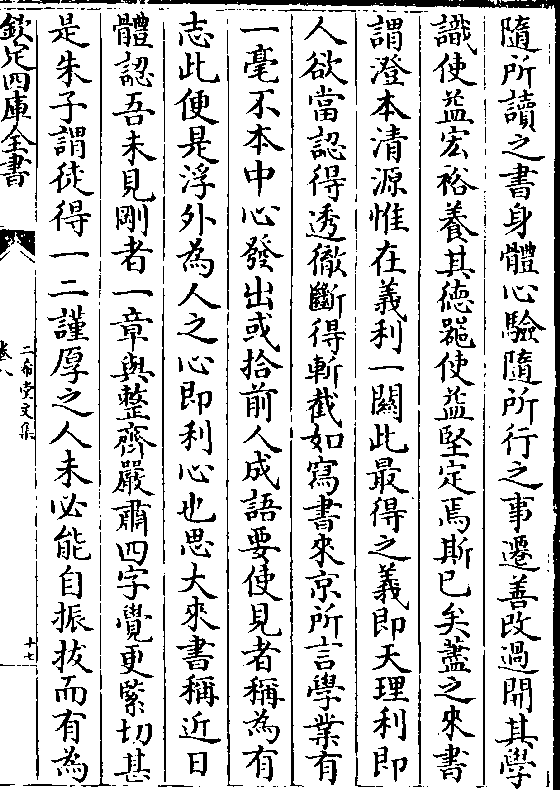 隨所讀之書身體心驗隨所行之事遷善改過開其學
識使益宏裕養其德器使益堅定焉斯已矣藎之來書
謂澄本清源惟在義利一關此最得之義即天理利即
人欲當認得透徹斷得斬截如寫書來京所言學業有
一毫不本中心發出或拾前人成語要使見者稱為有
志此便是浮外為人之心即利心也思大來書稱近日
體認吾未見剛者一章與整齊嚴肅四字覺更緊切甚
是朱子謂徒得一二謹厚之人未必能自振拔而有為
欽定四庫全書
二希堂文集
卷八
十七